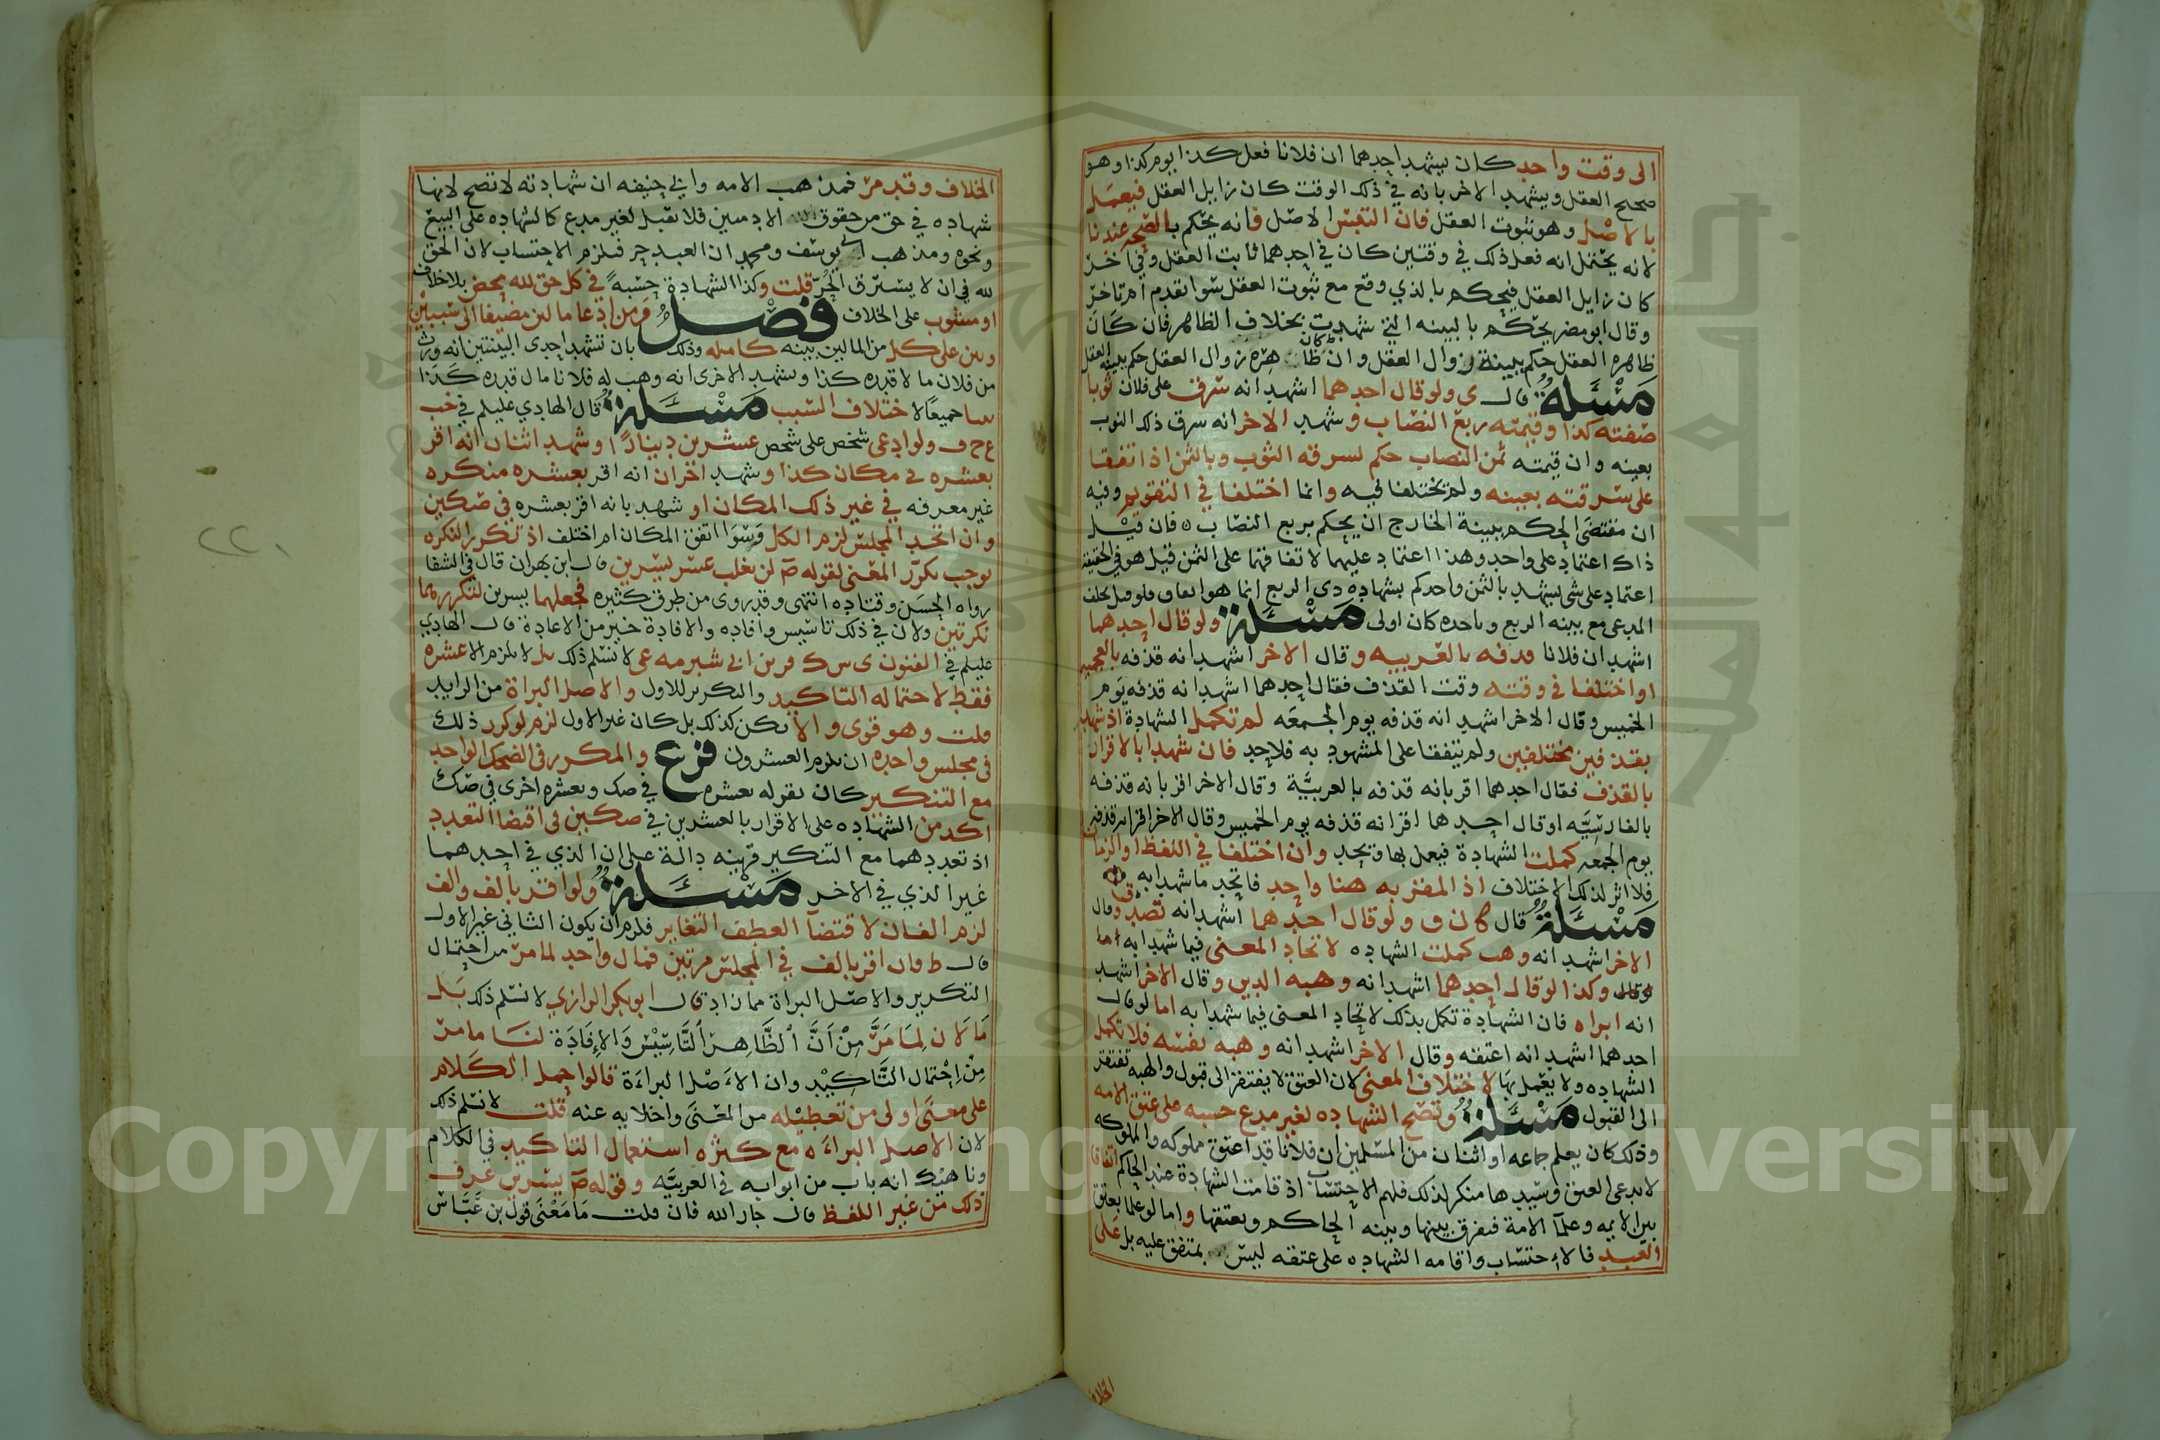 الى وقت واحد كان يشهد احدهما ان فلانا فعل كذا يوم كذا وهو
صحيح العقل ويشهد الاخر بانه في ذلك الوقت كان زايل العقل فيعمل
بالاصل وهو ثبوت العقل فان التبس الاصل فانه يحكم بالصحه عندنا
لانه يحتمل انه فعل ذلك في وقتين كان في احدهما ثابت العقل وفي اخر
كان زايل العقل فيحكم بالذي وقع مع ثبوت العقل سوا تقدم ام تاخر
وقال ابو مضر يحكم بالبينه التي شهدت بخلاف الظاهر فان كان
ظاهره العقل حكم ببينة زوال العقل وان كان ظاهره زوال العقل حكم ببينة العقل
مسئلة قال ى ولو قال احدهما اشهد انه سرق على فلان ثوبا
صفته كذا وقيمته ربع النصاب وشهد الاخر انه سرق ذلك الثوب
بعينه وان قيمته ثمن النصاب حكم لسرقه الثوب وبالثمن اذ اتفقا
على سرقته بعينه ولم يختلفا فيه وانما اختلفا في التقويم وفيه
ان مقتضى الحكم ببينة الخارج ان يحكم بربع النصاب ه فان قيل
ذاك اعتماد على واحد وهذا اعتماد عليهما لاتفاقهما على الثمن قيل هو في الحقيقة
اعتماد على شي يشهد بالثمن واحد كم بشهاده ذي الربع انما هو اتفاق فلو قيل يحلف
المدعي مع بينه الربع وياخده كان اولى مسئلة ولو قال احدهما
اشهد ان فلانا قدفه بالعربيه وقال الاخر اشهد انه قذفه بالعجميه
او اختلفا في وقته وقت القذف فقال احدهما اشهد انه قذفه يوم
الخميس وقال الاخر اشهد انه قذفه يوم الجمعه لم تكمل الشهادة اذ شهد
بقذفين مختلفين ولم يتفقا على المشهود به فلا حد فان شهدا بالاقرار
بالقذف فقال احدهما اقر بانه قذفه بالعربيَّة وقال الاخر اقر بانه قذفه
بالفارسيَّه او قال احدهما اقر انه قذفه يوم الخميس وقال الاخر اقر انه قذفه
يوم الجمعه كملت الشهادة فيعمل بها ويحد وان اختلفا في اللفظ او الزمان
فلا اثر لذلك الاختلاف اذ المقر به هنا واحد فاتحد ما شهدا به
مسئلة قال ولو قال احدهما اشهد انه تصدق وقال
الاخر اشهد انه وهب كملت الشهاده لاتحاد المعنى فيما شهدا به اما
وكذا لو قال احدهما اشهد انه وهبه الدين وقال الاخر اشهد
انه ابراه فان الشهادة تكمل بذلك لاتحاد المعنى فيما شهدا به اما لو قال
احدهما اشهد انه اعتقه وقال الاخر اشهد انه وهبه نفسه فلا تكمل
الشهاده ولا يعمل بها لاختلاف المعنى لان العتق لا يفتقر الى قبول والهبه تفتقر
الى القبول مسئلة وتصح الشهاده لغير مدع حسبه على عتق الامه
وذلك كان يعلم جماعه او اثنان من المسلمين ان فلانا قد اعتق مملوكه والمملوكه
لا تدعي العتق وسيدها منكر لذلك فلهم الاحتساب اذ قامت الشهادة عند الحاكم اتفاقا
بين الايمه وعلما الامة فيفرق بينها وبينه الحاكم ويعتقها واما لو علما بعتق
العبد فالاحتساب واقامه الشهاده على عتقه ليس بمتفق عليه بل على
الخلاف
الخلاف وقد مر فمذهب الامه وابي حنيفه ان شهادته لا تصح لانها
شهاده في حق من حقوق الادميين فلا تقبل لغير مدع كالشهاده على البيع
ونحوه ومذهب ابي يوسف ومحمد ان العبد حر فيلزم الاحتساب لان الحق
لله في ان لا يسترق الحر قلت وكذا الشهادة حسبةً في كل حق لله محض بلا خلاف
او مشوب على الخلاف فصل ومن ادعا مالين مضيفا الى سببين
وبين على كل من المالين ببينه كامله وذلك بان تشهد احدى البينتين انه ورث
من فلان مالا قدره كذا وتشهد الاخرى انه وهب له فلانا مال قدره كذا
جميعًا لاختلاف السبب مسئلة قال الهادي عليلم في خب
ع ح ف ولو ادعى شخص على شخص عشرين دينارًا وشهد اثنان انه اقر
بعشره في مكان كذا وشهد اخران انه اقر بعشره منكره
غير معرفه في غير ذلك المكان او شهد بانه اقر بعشره في صكين
وان اتحد المجلس لزم الكل وسوا اتفق المكان ام اختلف اذ تكرر النكره
يوجب تكرر المعنى لقوله ص لن يغلب عسر يسرين قال ابن بهران قال في الشفا
رواه الحسن وقتاده انتهى وقد روى من طرق كثيره فجعلهما يسرين لتكررهما
نكرتين ولان في ذلك تاسيس وافاده والافادة خير من الاعادة قال الهادي
عليلم في الفنون ى س ك وبن ابي شبرمه عى لا نسلم ذلك بل لا يلزم الا عشره
فقط لاحتماله التاكيد والتكرير للاول والاصل البراة من الزايد
قلت وهو قوى والا يكن كذلك بل كان غير الاول لزم لو كرر ذلك
في مجلس واحد ان يلزم العشرون فرع والمكرر في الصك الواحد
مع التنكير كان يقوله بعشره في صك وبعشره اخرى في صك
اكد من الشهاده على الاقرار بالعشرين في صكين في اقتضا التعدد
اذ تعددهما مع التنكير قرينه دالة على ان الذي في احدهما
غير الذي في الاخر مسئلة ولو اقر بالف والف
لزم الفان لاقتضآ العطف التغاير فلزم ان يكون الثاني غير الاول
قال ط فان اقر بالف في المجلس مرتين فمال واحد لما مر من احتمال
التكرير والاصل البراة مما زاد قال ابو بكر الرازي لا نسلم ذلك بل
مالان لما مرَّ مِنْ اَنَّ الظَّاهِرَ التَّاسِيْسُ وَالاِفَادَة لنا ما مر
مِنْ اِحْتِمال التَّاكِيْد وان الاَصْل البراءَة قالوا حمل الكلام
على معنًى اولى من تعطيله من المعْنَى واخلايه عنه قلت لا نسلم ذلك
لان الاصل البراءَه مع كثره استعمال التاكيد في الكلام
وناهيْك انه باب من ابوابه في العربيَّه وقوله ص يسرين عرف
ذلك من غير اللفظ قال جار الله فان قلت ما معْنَى قول بن عَبَّاس
٢٢١
Copyright © King Saud University
جامعة الملك سعود